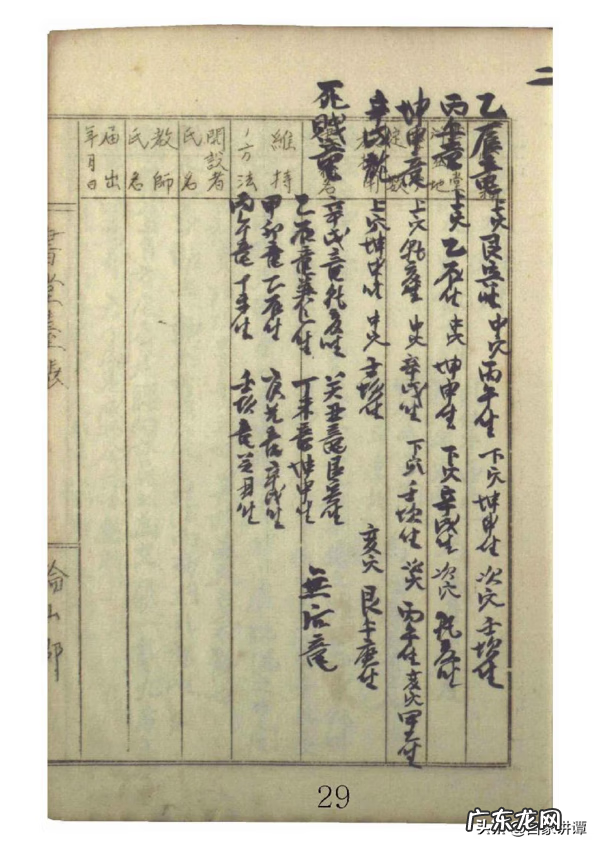 二
乙辰竜 上穴艮寅坐 中穴丙午坐 下穴坤申坐 次穴壬坎坐
丙午竜 上穴乙辰坐 中穴坤申坐 下穴辛戌坐 次穴乾亥坐
坤申竜 上穴乾亥坐 中穴辛戌坐 下穴壬坎坐 丙午坐
辛戌龍 上穴坤申坐 中穴壬坎坐
死賊竜 辛戌竜乾亥坐 癸丑竜艮寅坐 無后竜
乙辰竜巽巳坐 丁未竜坤申坐
甲卯竜乙辰坐 庚兌竜辛戌坐
丙午竜丁未坐 壬坎竜癸丑坐
維持
ノ方法
開設者
氏名
教師
氏名
届出
年月日
書堂臺帳
論山郡
29
广东龙网
头条 @百家讲谭